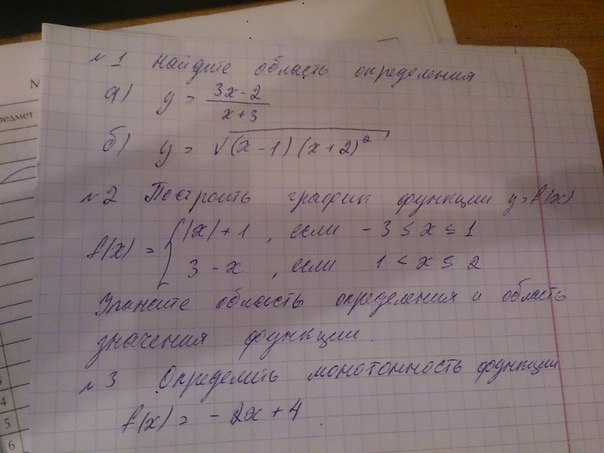 №1 Найдите область определения
а) y = 3x-2 / x+3
б) y = √(x-1)(x+2)²
№2 Построить график функции y=f(x)
f(x) = { |x|+1, если -3 ≤ x ≤ 1
3-x, если 1 < x ≤ 2
Укажите область определения и область
значения функции.
№3 Определить монотонность функции
f(x) = -2x+4
4
5
6